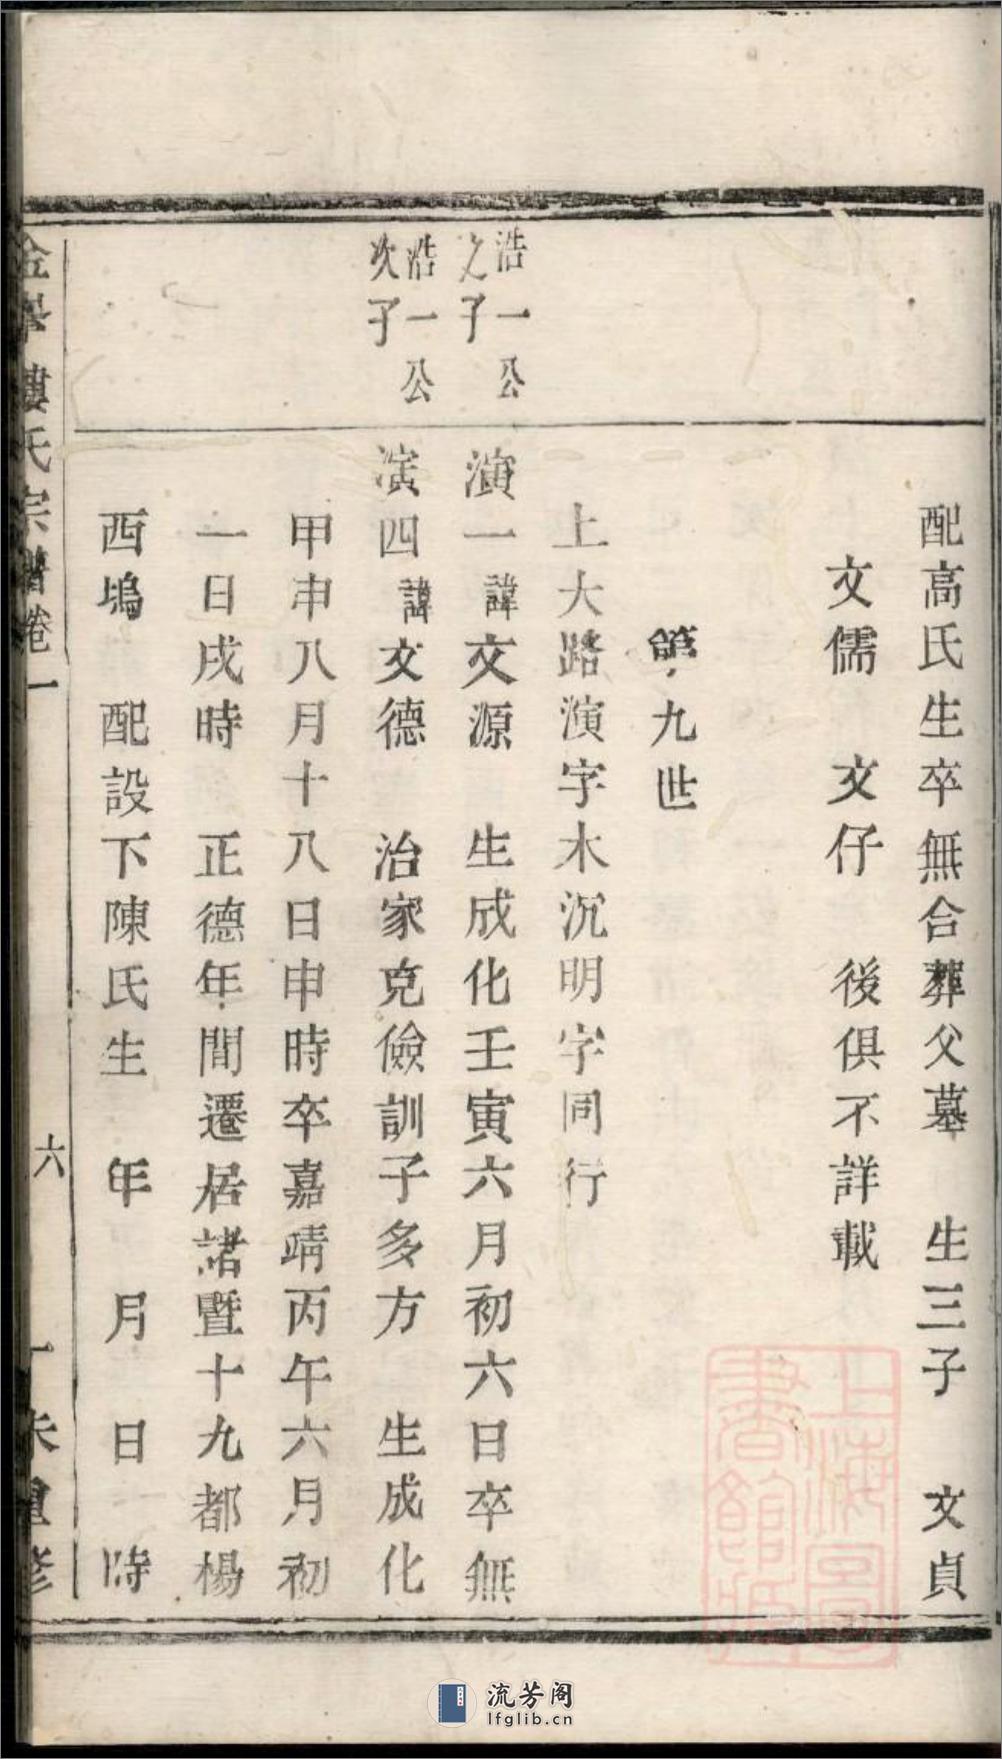 配高氏生卒無合葬父墓　生三子　文貞
文儒　文仔　後俱不詳載
第九世
上大路演字木沉明字同行
浩一公
之子
演一諱文源　生成化壬寅六月初六日卒無
浩一公
次子
演四諱文德　治家克儉訓子多方　生成化
甲申八月十八日申時卒嘉靖丙午六月初
一日戌時　正德年間遷居諸暨十九都楊
西塢　配設下陳氏生　年　月　日　時
樓氏宗譜卷一
六
重修
上海圖書館藏
流芳阁
lfglib.cn